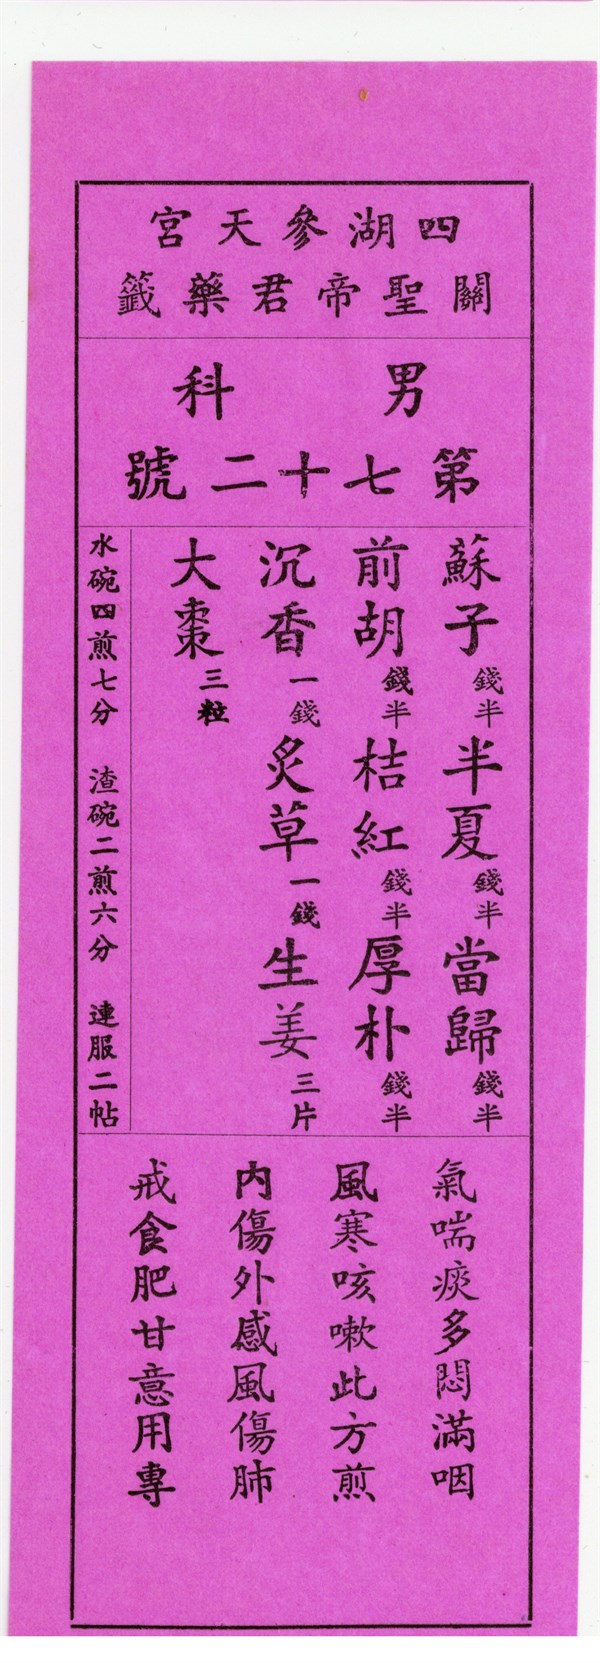 四湖參天宮
關聖帝君藥籤
男科
第七十二號
蘇子錢半半夏錢半當歸錢半
前胡錢半桔紅錢半厚朴錢半
沉香一錢炙草一錢生姜三片
大棗三粒
水碗四煎七分 渣碗二煎六分 連服二帖
氣喘痰多悶滿咽
風寒咳嗽此方煎
內傷外感風傷肺
戒食肥甘意用專